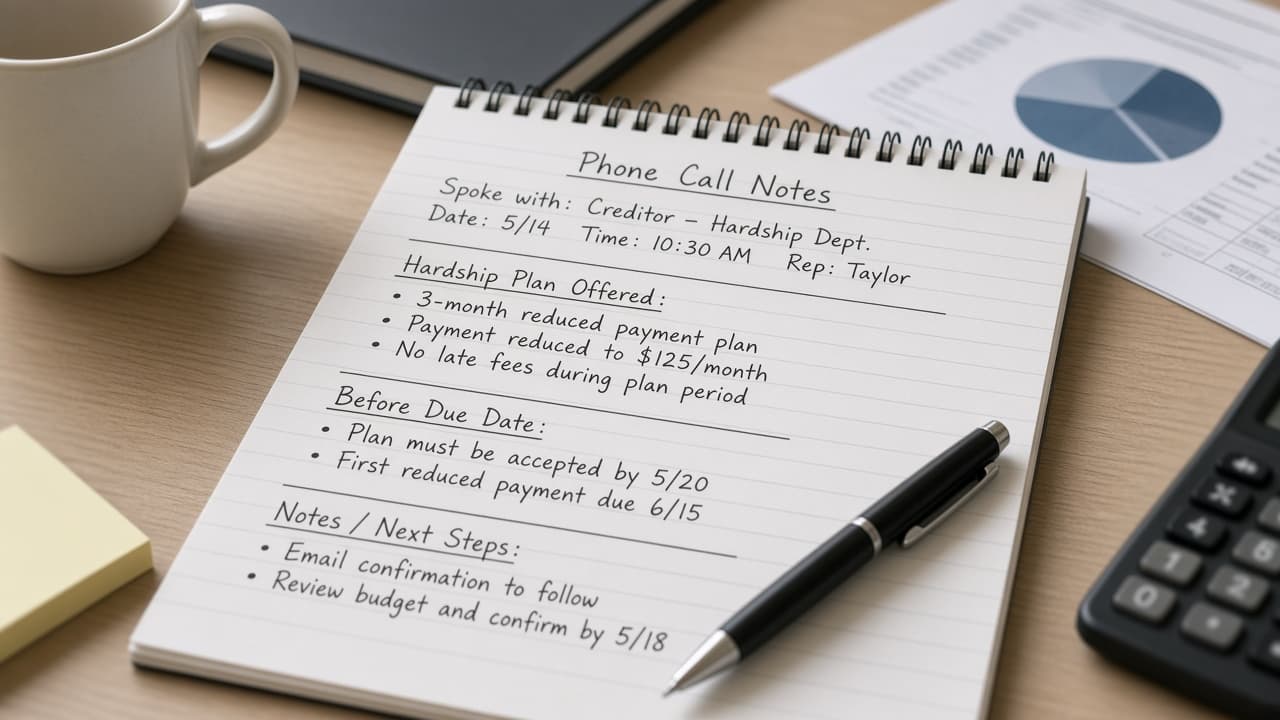 Phone Call Notes
Spoke with: Creditor – Hardship Dept.
Date: 5/14 Time: 10:30 AM Rep: Taylor
Hardship Plan Offered:
• 3-month reduced payment plan
• Payment reduced to $125/month
• No late fees during plan period
Before Due Date:
• Plan must be accepted by 5/20
• First reduced payment due 6/15
Notes / Next Steps:
• Email confirmation to follow
• Review budget and confirm by 5/18
1
0
2